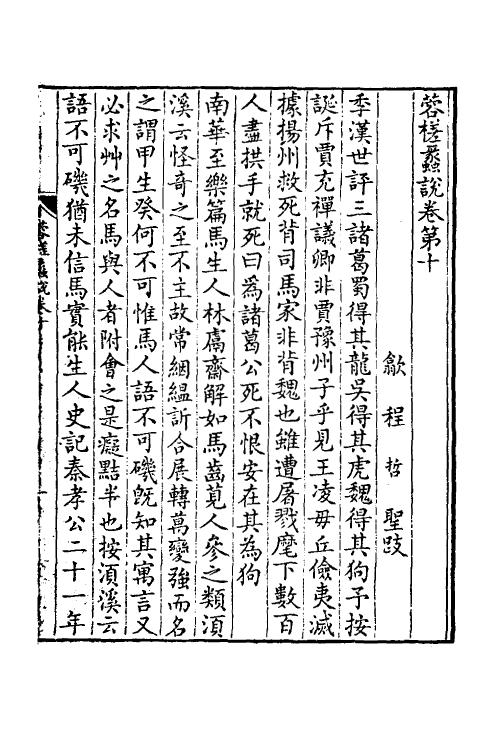 蓉槎蠡說卷第十
歙程哲聖跂
季漢世評三諸葛蜀得其龍吳得其虎魏得其狗予按
誕斥賈充禪議卿非賈豫州子乎見王凌毋丘儉夷滅
據揚州救死背司馬家非背魏也雖遭屠戮麾下數百
人盡拱手就死曰為諸葛公死不恨安在其為狗
南華至樂篇馬生人林鬳齋解如馬齒莧人參之類湏
溪云怪奇之至不主故常絪縕訢合展轉萬變強而名
之謂甲生癸何不可惟馬人語不可磯旣知其寓言又
必求艸之名馬與人者附會之是癡黠半也按湏溪云
語不可磯猶未信馬實能生人史記秦孝公二十一年
蓉槎蠡說卷十